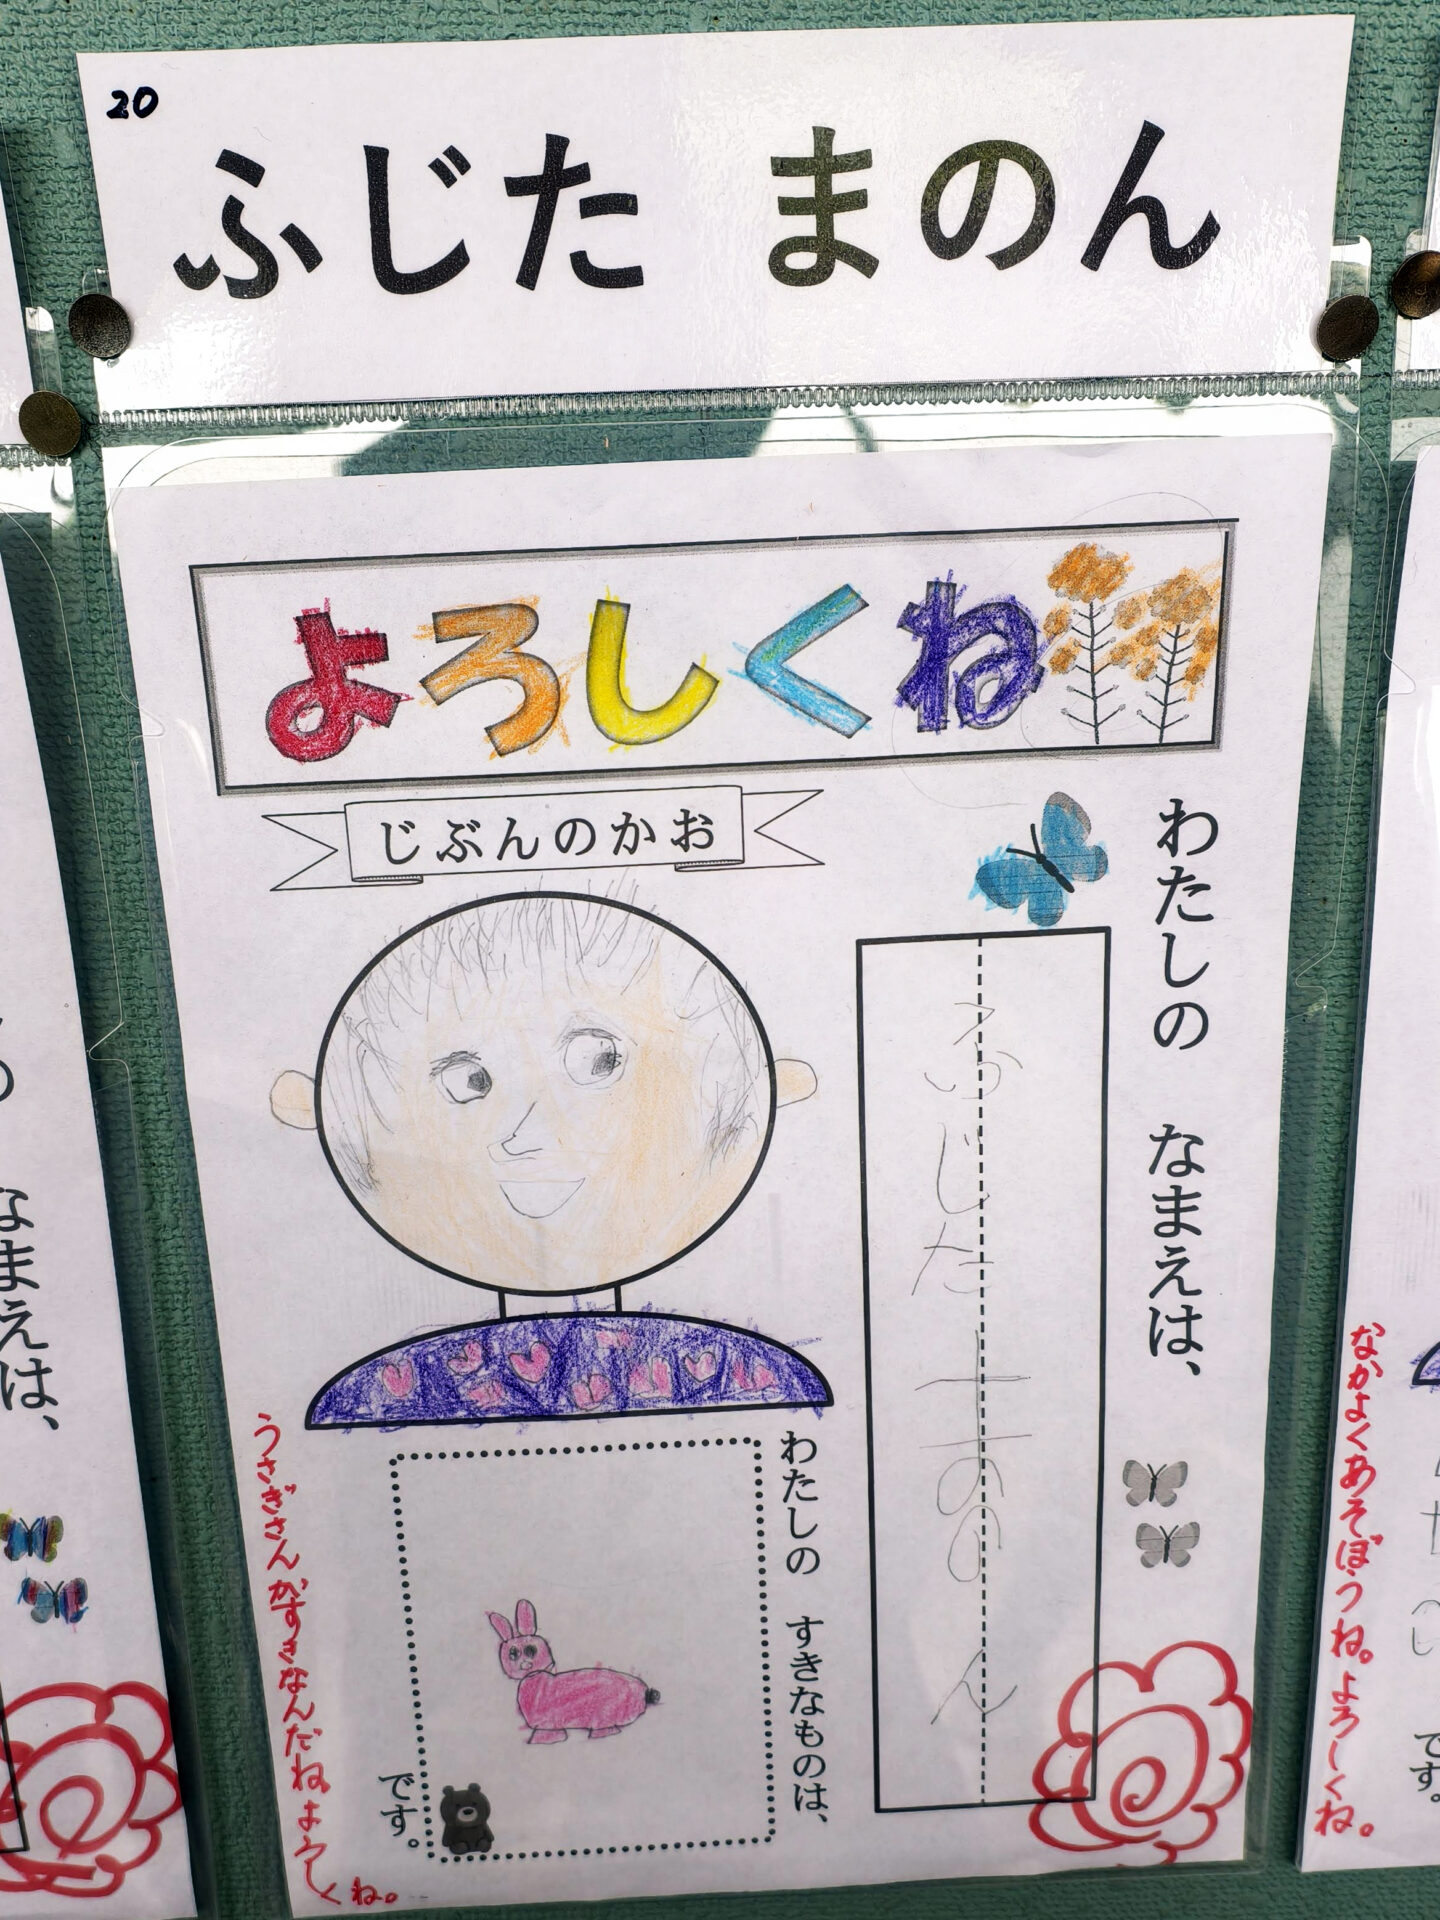 20
ふじた まのん
よろしくね
じぶんのかお
わたしの なまえは、
ふじた まのん
わたしの すきなものは、
です。
うさぎさんがすきなんだね。よろしくね。
なまえは、
なかよくあそぼうね。よろしくね。
です。